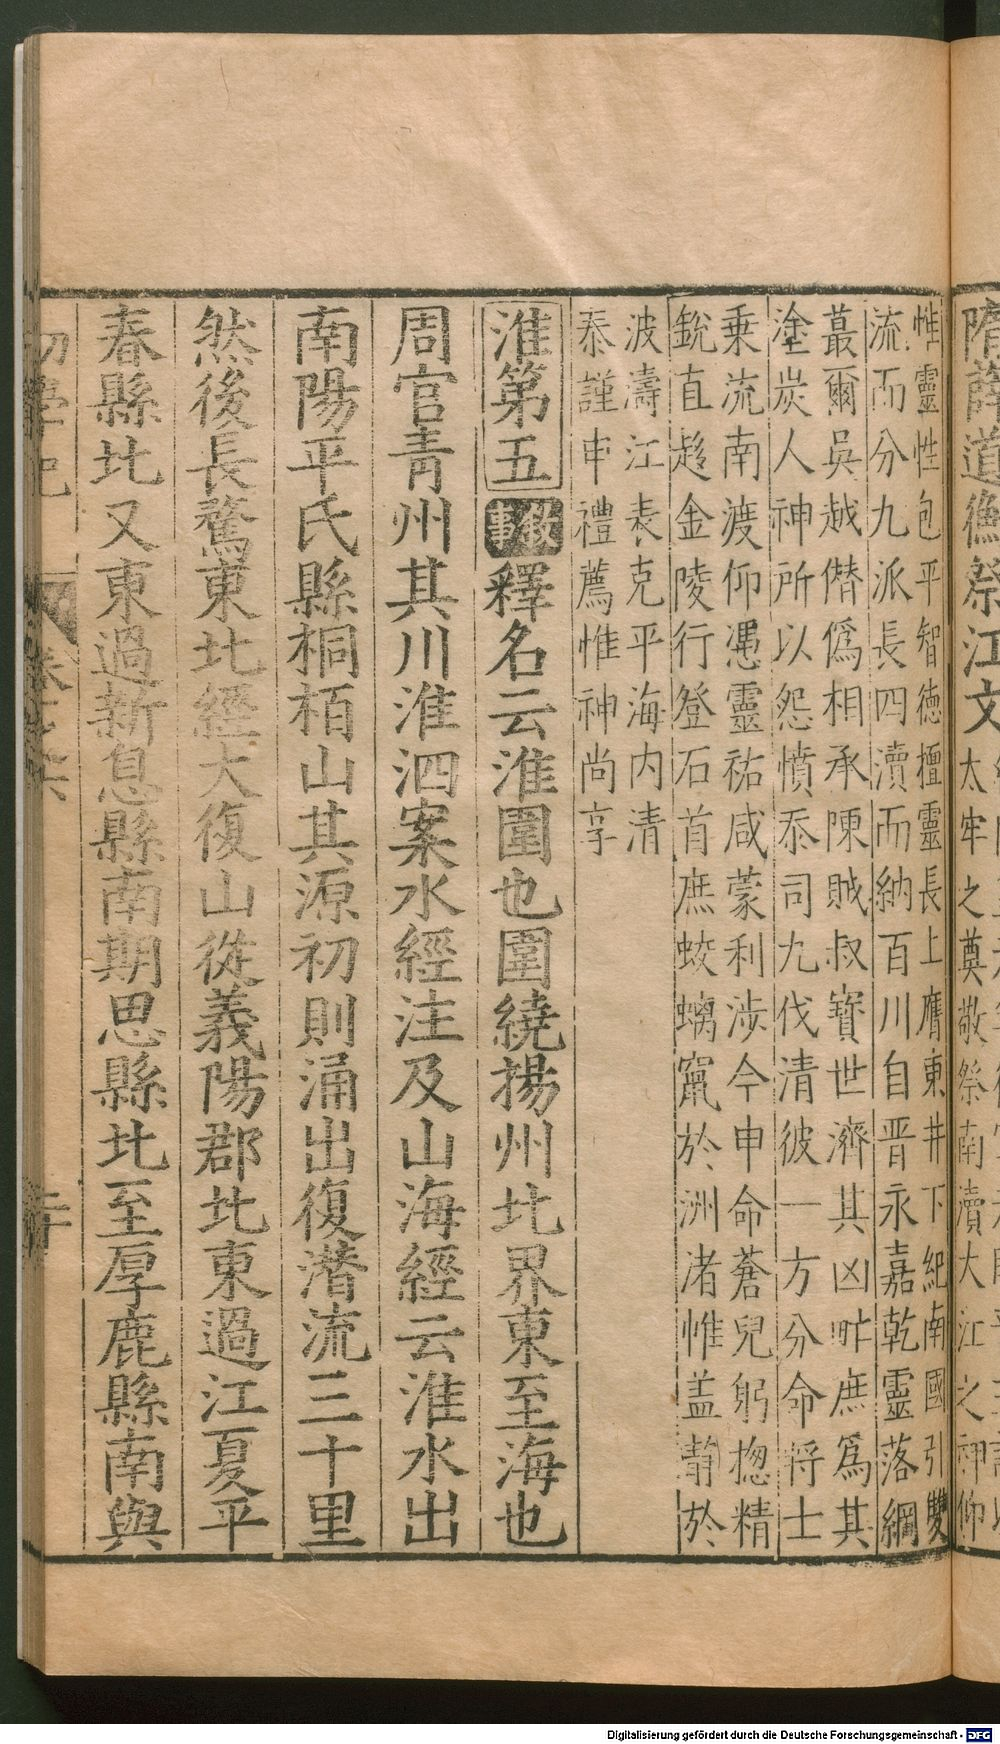 隋薛道衡祭江文
太牢之奠敬祭南瀆大江之神仰
惟靈性包平智德擅靈長上膺東井下紀南國引雙
流而分九派長四瀆而納百川自晋永嘉乾靈落綱
蕞爾吳越僭僞相承陳賊叔寳世濟其凶畔庶爲其
塗炭人神所以怨憤忝司九伐清彼一方分命將士
乗流南渡仰慿靈祐咸蒙利涉今申命蒼兕躬揔精
銳直趍金陵行登石首庶蛟螭竄於洲渚惟盖静於
波濤江表克平海内清
忝謹申禮薦惟神尚享
淮第五 叙事 釋名云淮圍也圍繞揚州北界東至海也
周官青州其川淮泗案水經注及山海經云淮水出
南陽平氏縣桐栢山其源初則涌出復潜流三十里
然後長騖東北經大復山從義陽郡北東過江夏平
春縣北又東過新息縣南期思縣北至厚鹿縣南與
初學記 卷之六 二十
Digitalisierung gefördert durch die Deutsche Forschungsgemeinschaft - DFG